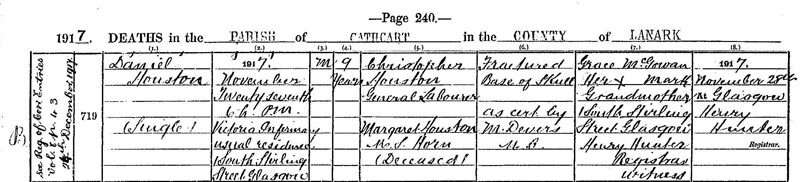 —Page 240.—
1917. DEATHS in the PARISH of CATHCART in the COUNTY of LANARK
(1.) (2.) (3.) (4.) (5.) (6.) (7.) (8.)
See Reg of Corr Entries
Vol p 43
December 1917
719
Daniel
Houston
(Single)
1917.
November
Twenty seventh
6h. P.M.
Victoria Infirmary
usual residence
1 South Stirling
Street Glasgow
M
9
Years
Christopher
Houston
General Labourer
Margaret Houston
M.S. Horn
(Deceased)
Fractured
Base of Skull
as cert by
M. Devers
M.B.
Grace McGowan
Her x mark
Grandmother
1 South Stirling
Street Glasgow
Henry Hunter
Registrar
witness
1917.
November 28th
At Glasgow
Henry
Hunter
Registrar.